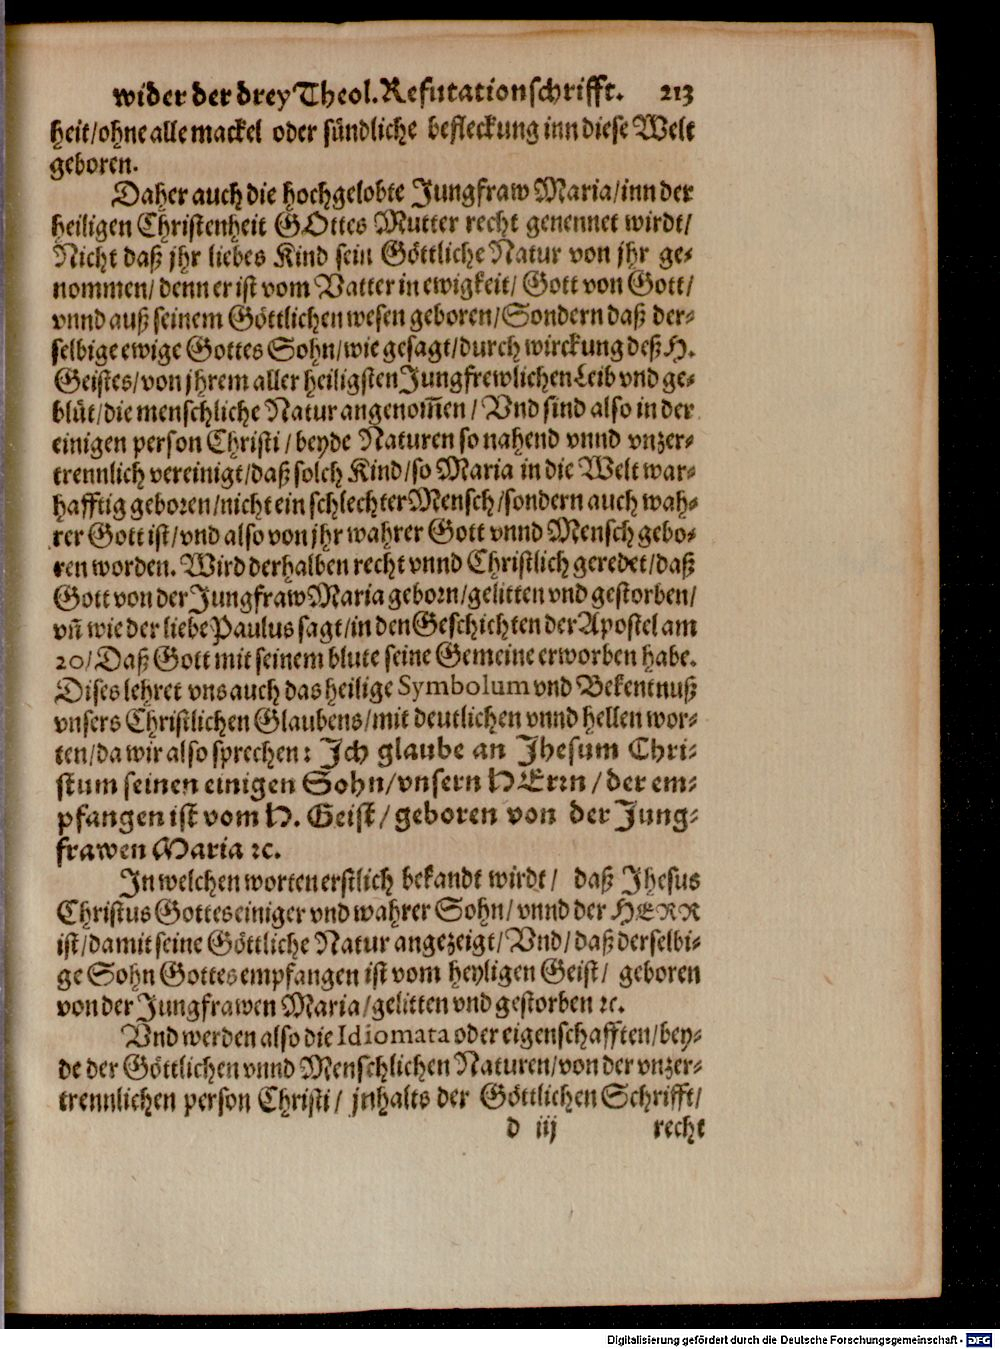 wider der drey Theol. Refutationschrifft. 213
heit/ohne alle mackel oder sündliche befleckung inn diese Welt
geboren.
Daher auch die hochgelobte Jungfraw Maria/inn der
heiligen Christenheit GOttes Mutter recht genennet wirdt/
Nicht daß jhr liebes Kind sein Göttliche Natur von jhr ge-
nommen/ denn er ist vom Vatter in ewigkeit/ Gott von Gott/
vnnd auß seinem Göttlichen wesen geboren/Sondern daß der-
selbige ewige Gottes Sohn/wie gesagt/durch wirckung deß H.
Geistes/von jhrem aller heiligsten Jungfrewlichen Leib vnd ge-
blüt/die menschliche Natur angenom̃en/ Vnd sind also in der
einigen person Christi/beyde Naturen so nahend vnnd vnzer-
trennlich vereinigt/daß solch Kind/so Maria in die Welt war-
hafftig geboren/nicht ein schlechter Mensch/sondern auch wah-
rer Gott ist/vnd also von jhr wahrer Gott vnnd Mensch gebo-
ren worden. Wird derhalben recht vnnd Christlich geredet/daß
Gott von der Jungfraw Maria geborn/gelitten vnd gestorben/
vñ wie der liebe Paulus sagt/in den Geschichten der Apostel am
20/Daß Gott mit seinem blute seine Gemeine erworben habe.
Dises lehret vns auch das heilige Symbolum vnd Bekentnuß
vnsers Christlichen Glaubens/mit deutlichen vnnd hellen wor-
ten/da wir also sprechen: Jch glaube an Jhesum Chri-
stum seinen einigen Sohn/vnsern HErrn/der em-
pfangen ist vom H. Geist/geboren von der Jung-
frawen Maria ꝛc.
In welchen worten erstlich bekandt wirdt/ daß Jhesus
Christus Gottes einiger vnd wahrer Sohn/vnnd der HERR
ist/damit seine Göttliche Natur angezeigt/Vnd/daß derselbi-
ge Sohn Gottes empfangen ist vom heyligen Geist/ geboren
von der Jungfrawen Maria/gelitten vnd gestorben ꝛc.
Vnd werden also die Idiomata oder eigenschafften/bey-
de der Göttlichen vnnd Menschlichen Naturen/von der vnzer-
trennlichen person Christi/ jnhalts der Göttlichen Schrifft/
d iij recht
Digitalisierung gefördert durch die Deutsche Forschungsgemeinschaft - DFG